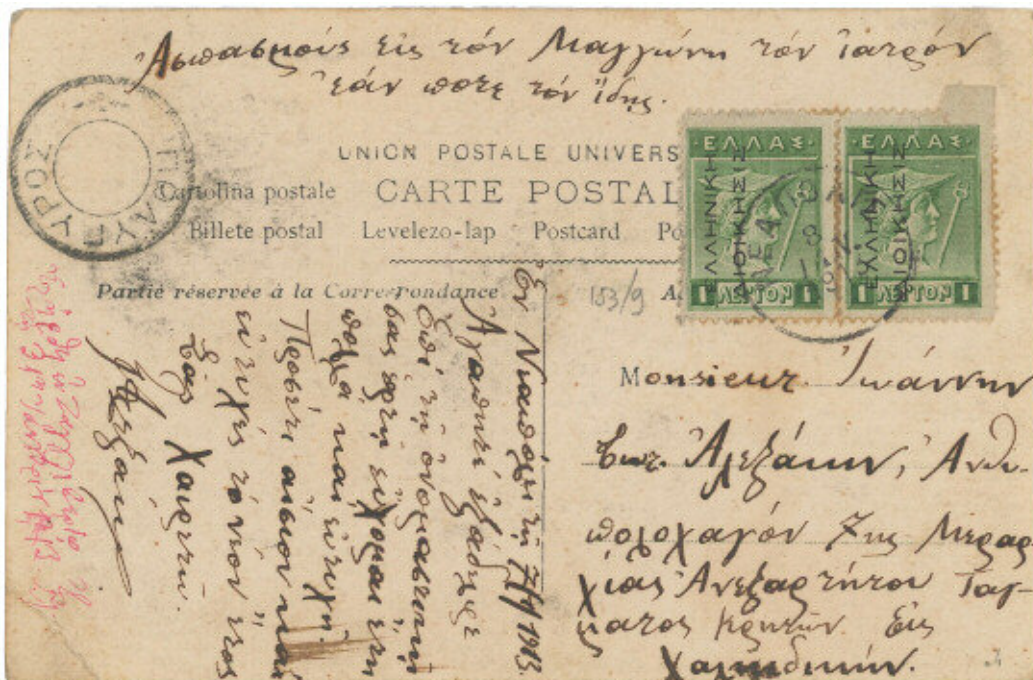 Ἀσπασμούς εἰς τόν Μαγγώνη τόν ἰατρόν
ἐάν ποτε τόν ἴδῃς.
ΠΥΡΟΣ
UNION POSTALE UNIVERS
Cartolina postale CARTE POSTAL
Billete postal Levelezo-lap Postcard Po
Partie réservée à la Correspondance
153/9
A
ΕΛΛΑΣ
ΕΛΛΗΝΙΚΗ
ΔΙΟΙΚΗΣΙΣ
1 ΛΕΠΤΟΝ 1
ΕΛΛΑΣ
ΕΛΛΗΝΙΚΗ
ΔΙΟΙΚΗΣΙΣ
1 ΛΕΠΤΟΝ 1
Ἐν Νεαπόλει τῇ 7/1 1913
Ἀγαπητέ ἐξάδελφε
Ἐπί τῇ ὀνομαστικῇ
σας ἑορτῇ εὔχομαι ἔτη
πολλά καί εὐτυχῆ.
Προσέτι αἴσιον καί
εὐτυχές τό νέον ἔτος
Σᾶς Χαιρετῶ.
Monsieur Ἰωάννην
Ἀλεξάκην, Ἀνθυ-
πολοχαγόν 7ης Μεραρ
χίας Ἀνεξαρτήτου Ταγ-
ματος Κρητῶν Εἰς
Χαλκιδικήν.